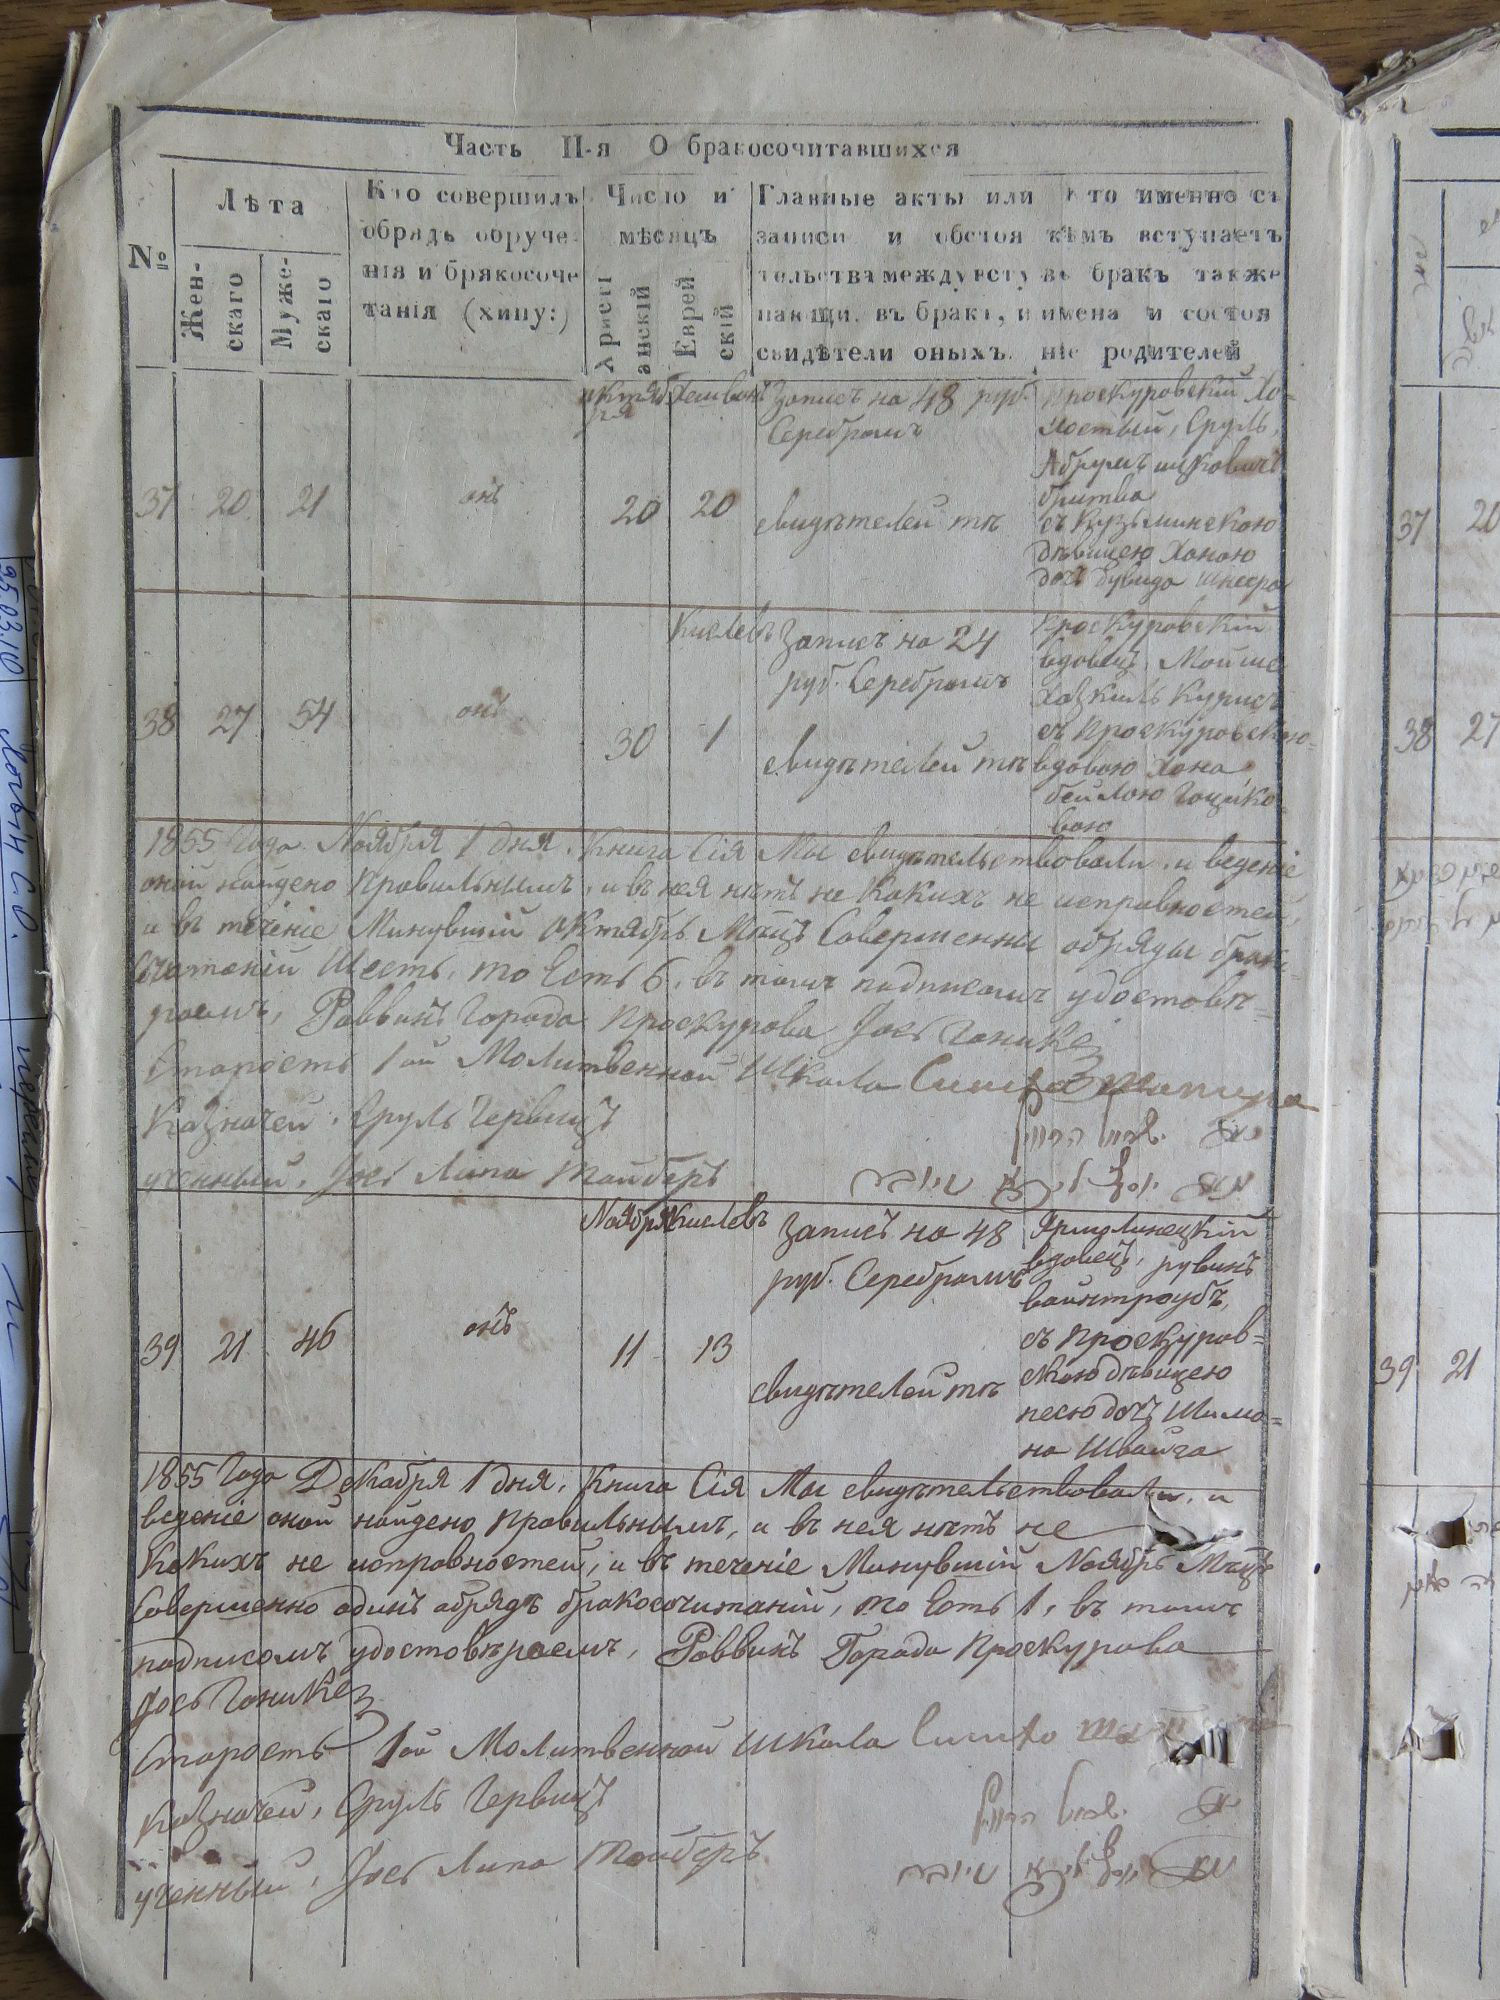 Часть II-я О бракосочитавшихся
№
Лѣта
Жен-
скаго
Муже-
скаго
Кто совершилъ
обрядъ обруче-
нія и брякосоче
танія (хипу:)
Число и
мѣсяцъ
Христі
анскій
Еврей
скій
Главные акты или
записи и обстоя
тельства между всту
пающи. въ бракъ, и
свидѣтели оныхъ.
Кто именно съ
кѣмъ вступаетъ
въ бракъ также
имена и состоя
ніе родителей
37
20
21
онъ
октяб
ря
20
Хешвонъ
20
Записъ на 48 руб.
Серебромъ
свидѣтелей тѣ
Проскуровскій Хо-
лостый, Сруль,
Абрумъ ицковичъ
бритва
съ Кузьминскою
дѣвицею Ханою
дочъ Дувида Шнеера
38
27
54
онъ
30
Кислевъ
1
Записъ на 24
руб. Серебромъ
свидѣтелей тѣ
Проскуровскій
вдовецъ, Мойше
Хазкиль Курисъ
съ Проскуровскою
вдовою Хана
бейлою Гоцико-
вою
1855 Года Ноября 1 дня. Книга Сія Мы свидѣтельствовали, и веденіе
оной найдено Правильнымъ, и въ нея нѣтъ не Какихъ не исправностей,
и въ теченіе Минувшій Октябрь Мцъ Совершенны обряды брако-
считаній Шесть, то Есть 6, въ томъ подписомъ удостовѣ-
ряемъ, Раввинъ Города Проскурова Јось Гоникез
Старостъ 1ой Молитвенной Школа Симха Шапира
Казначей, Сруль Червицъ
ученный, Јось Липа Тайберъ
39
21
46
онъ
Ноября
11
Кислевъ
13
Записъ на 48
руб. Серебромъ
свидѣтелей тѣ
Ярмолинецкій
вдовецъ, рувинъ
вайнтроубъ,
съ Проскуров-
скою дѣвицею
песю дочъ Шимо-
на Швайга
1855 Года Декабря 1 дня. Книга Сія Мы свидѣтельствовали, и
веденіе оной найдено Правильнымъ, и въ нея нѣтъ не
Какихъ не исправностей, и въ теченіе Минувшій Ноябрь Мцъ
Совершенно одинъ обрядъ бракосочитаній, то Есть 1, въ томъ
подписомъ удостовѣряемъ, Раввинъ Города Проскурова
Јось Гоникез
Старостъ 1ой Молитвенной Школа Симха
Казначей, Сруль Червицъ
ученный, Јось Липа Тайберъ
37
20
38
27
39
21